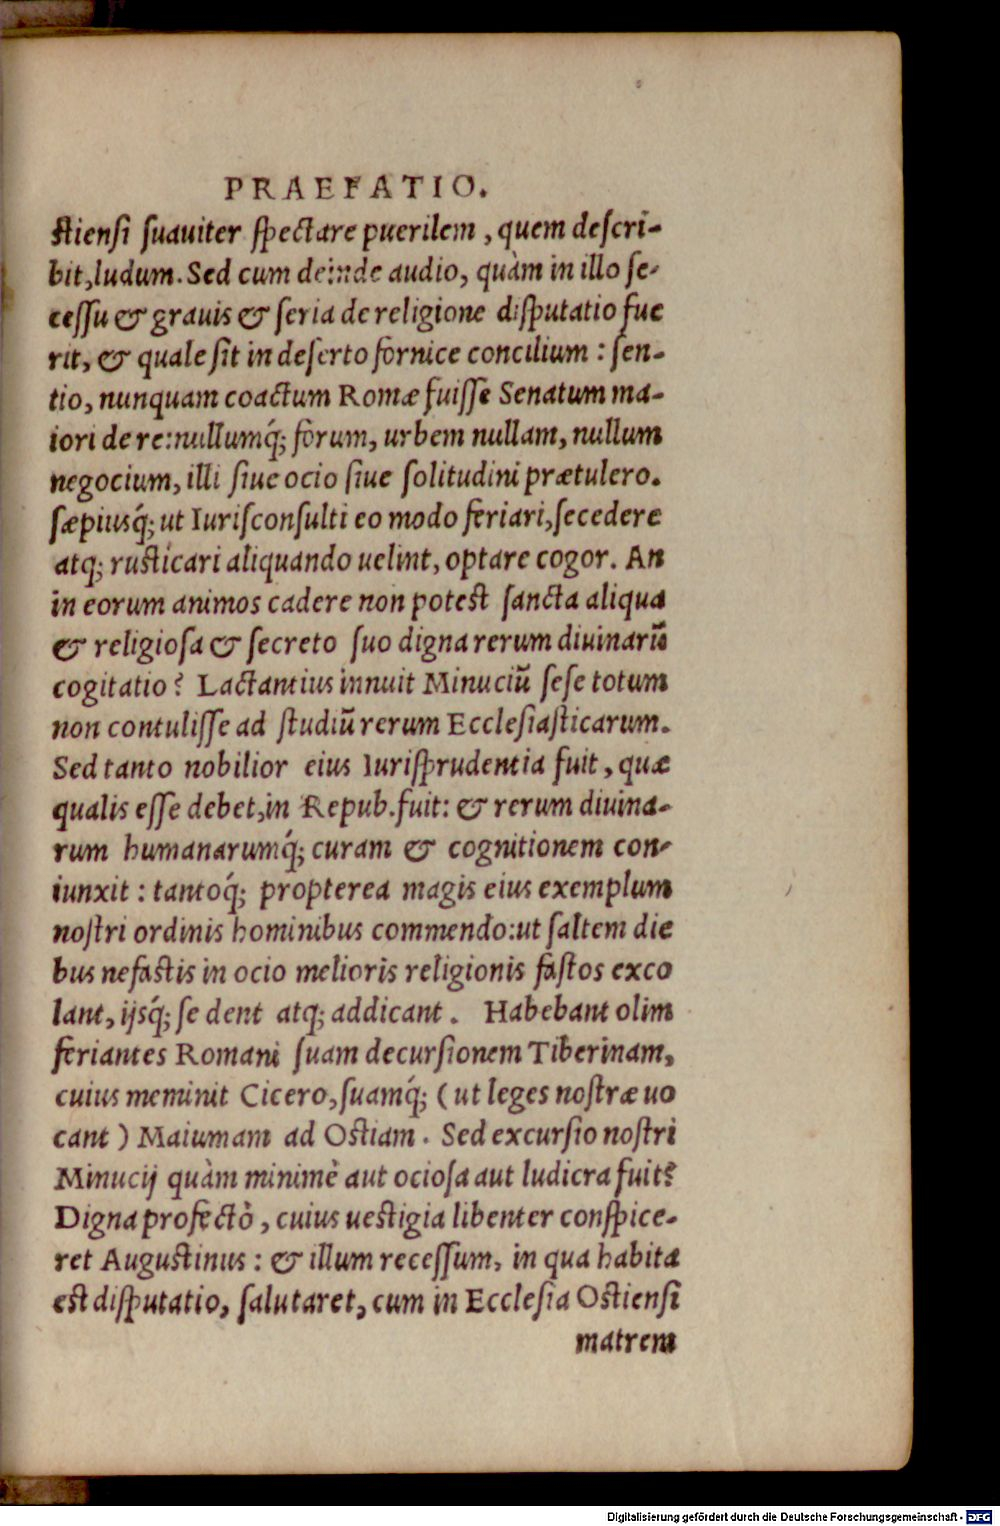 PRAEFATIO.
ſtienſi ſuauiter ſpectare puerilem, quem deſcri-
bit, ludum. Sed cum deinde audio, quàm in illo ſe-
ceſſu & grauis & ſeria de religione diſputatio fue
rit, & quale ſit in deſerto fornice concilium: ſen-
tio, nunquam coactum Romæ fuiſſe Senatum ma-
iori de re: nullumq́; forum, urbem nullam, nullum
negocium, illi ſiue ocio ſiue ſolitudini prætulero.
ſæpiusq́; ut Iuriſconſulti eo modo feriari, ſecedere
atq; ruſticari aliquando uelint, optare cogor. An
in eorum animos cadere non poteſt ſancta aliqua
& religioſa & ſecreto ſuo digna rerum diuinarũ
cogitatio? Lactantius innuit Minuciũ ſeſe totum
non contuliſſe ad ſtudiũ rerum Eccleſiaſticarum.
Sed tanto nobilior eius Iuriſprudentia fuit, quæ
qualis eſſe debet, in Repub. fuit: & rerum diuina-
rum humanarumq́; curam & cognitionem con-
iunxit: tantoq́; propterea magis eius exemplum
noſtri ordinis hominibus commendo: ut ſaltem die
bus nefaſtis in ocio melioris religionis faſtos exco
lant, ijsq́; ſe dent atq; addicant. Habebant olim
feriantes Romani ſuam decurſionem Tiberinam,
cuius meminit Cicero, ſuamq́; (ut leges noſtræ uo
cant) Maiumam ad Oſtiam. Sed excurſio noſtri
Minucij quàm minimè aut ocioſa aut ludicra fuit?
Digna profectò, cuius ueſtigia libenter conſpice-
ret Auguſtinus: & illum receſſum, in qua habita
eſt diſputatio, ſalutaret, cum in Eccleſia Oſtienſi
matrem
Digitalisierung gefördert durch die Deutsche Forschungsgemeinschaft - DFG